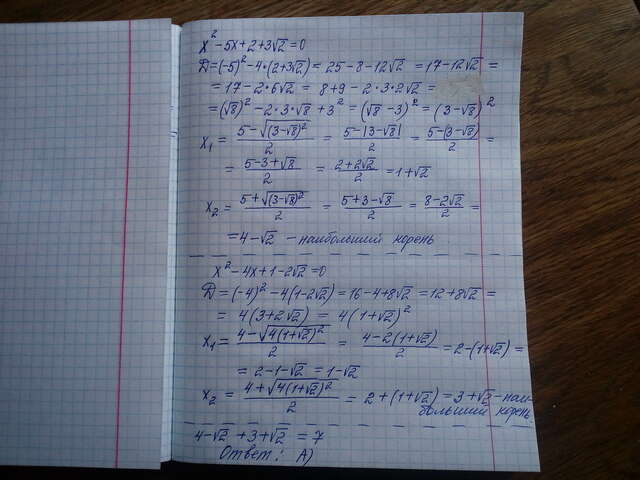 x² - 5x + 2 + 3√2 = 0
D = (-5)² - 4·(2+3√2) = 25 - 8 - 12√2 = 17 - 12√2 =
= 17 - 2·6√2 = 8+9 - 2·3·2√2 =
= (√8)² - 2·3·√8 + 3² = (√8 - 3)² = (3 - √8)²
x₁ = (5 - √((3-√8)²))/2 = (5 - |3-√8|)/2 = (5 - (3-√8))/2 =
= (5-3+√8)/2 = (2+2√2)/2 = 1+√2
x₂ = (5 + √((3-√8)²))/2 = (5+3-√8)/2 = (8-2√2)/2 =
= 4-√2 - наибольший корень
x² - 4x + 1 - 2√2 = 0
D = (-4)² - 4(1-2√2) = 16 - 4 + 8√2 = 12 + 8√2 =
= 4(3+2√2) = 4(1+√2)²
x₁ = (4 - √(4(1+√2)²))/2 = (4 - 2(1+√2))/2 = 2-(1+√2) =
= 2-1-√2 = 1-√2
x₂ = (4 + √(4(1+√2)²))/2 = 2+(1+√2) = 3+√2 - наи-
больший корень
4-√2 + 3+√2 = 7
Ответ: А)